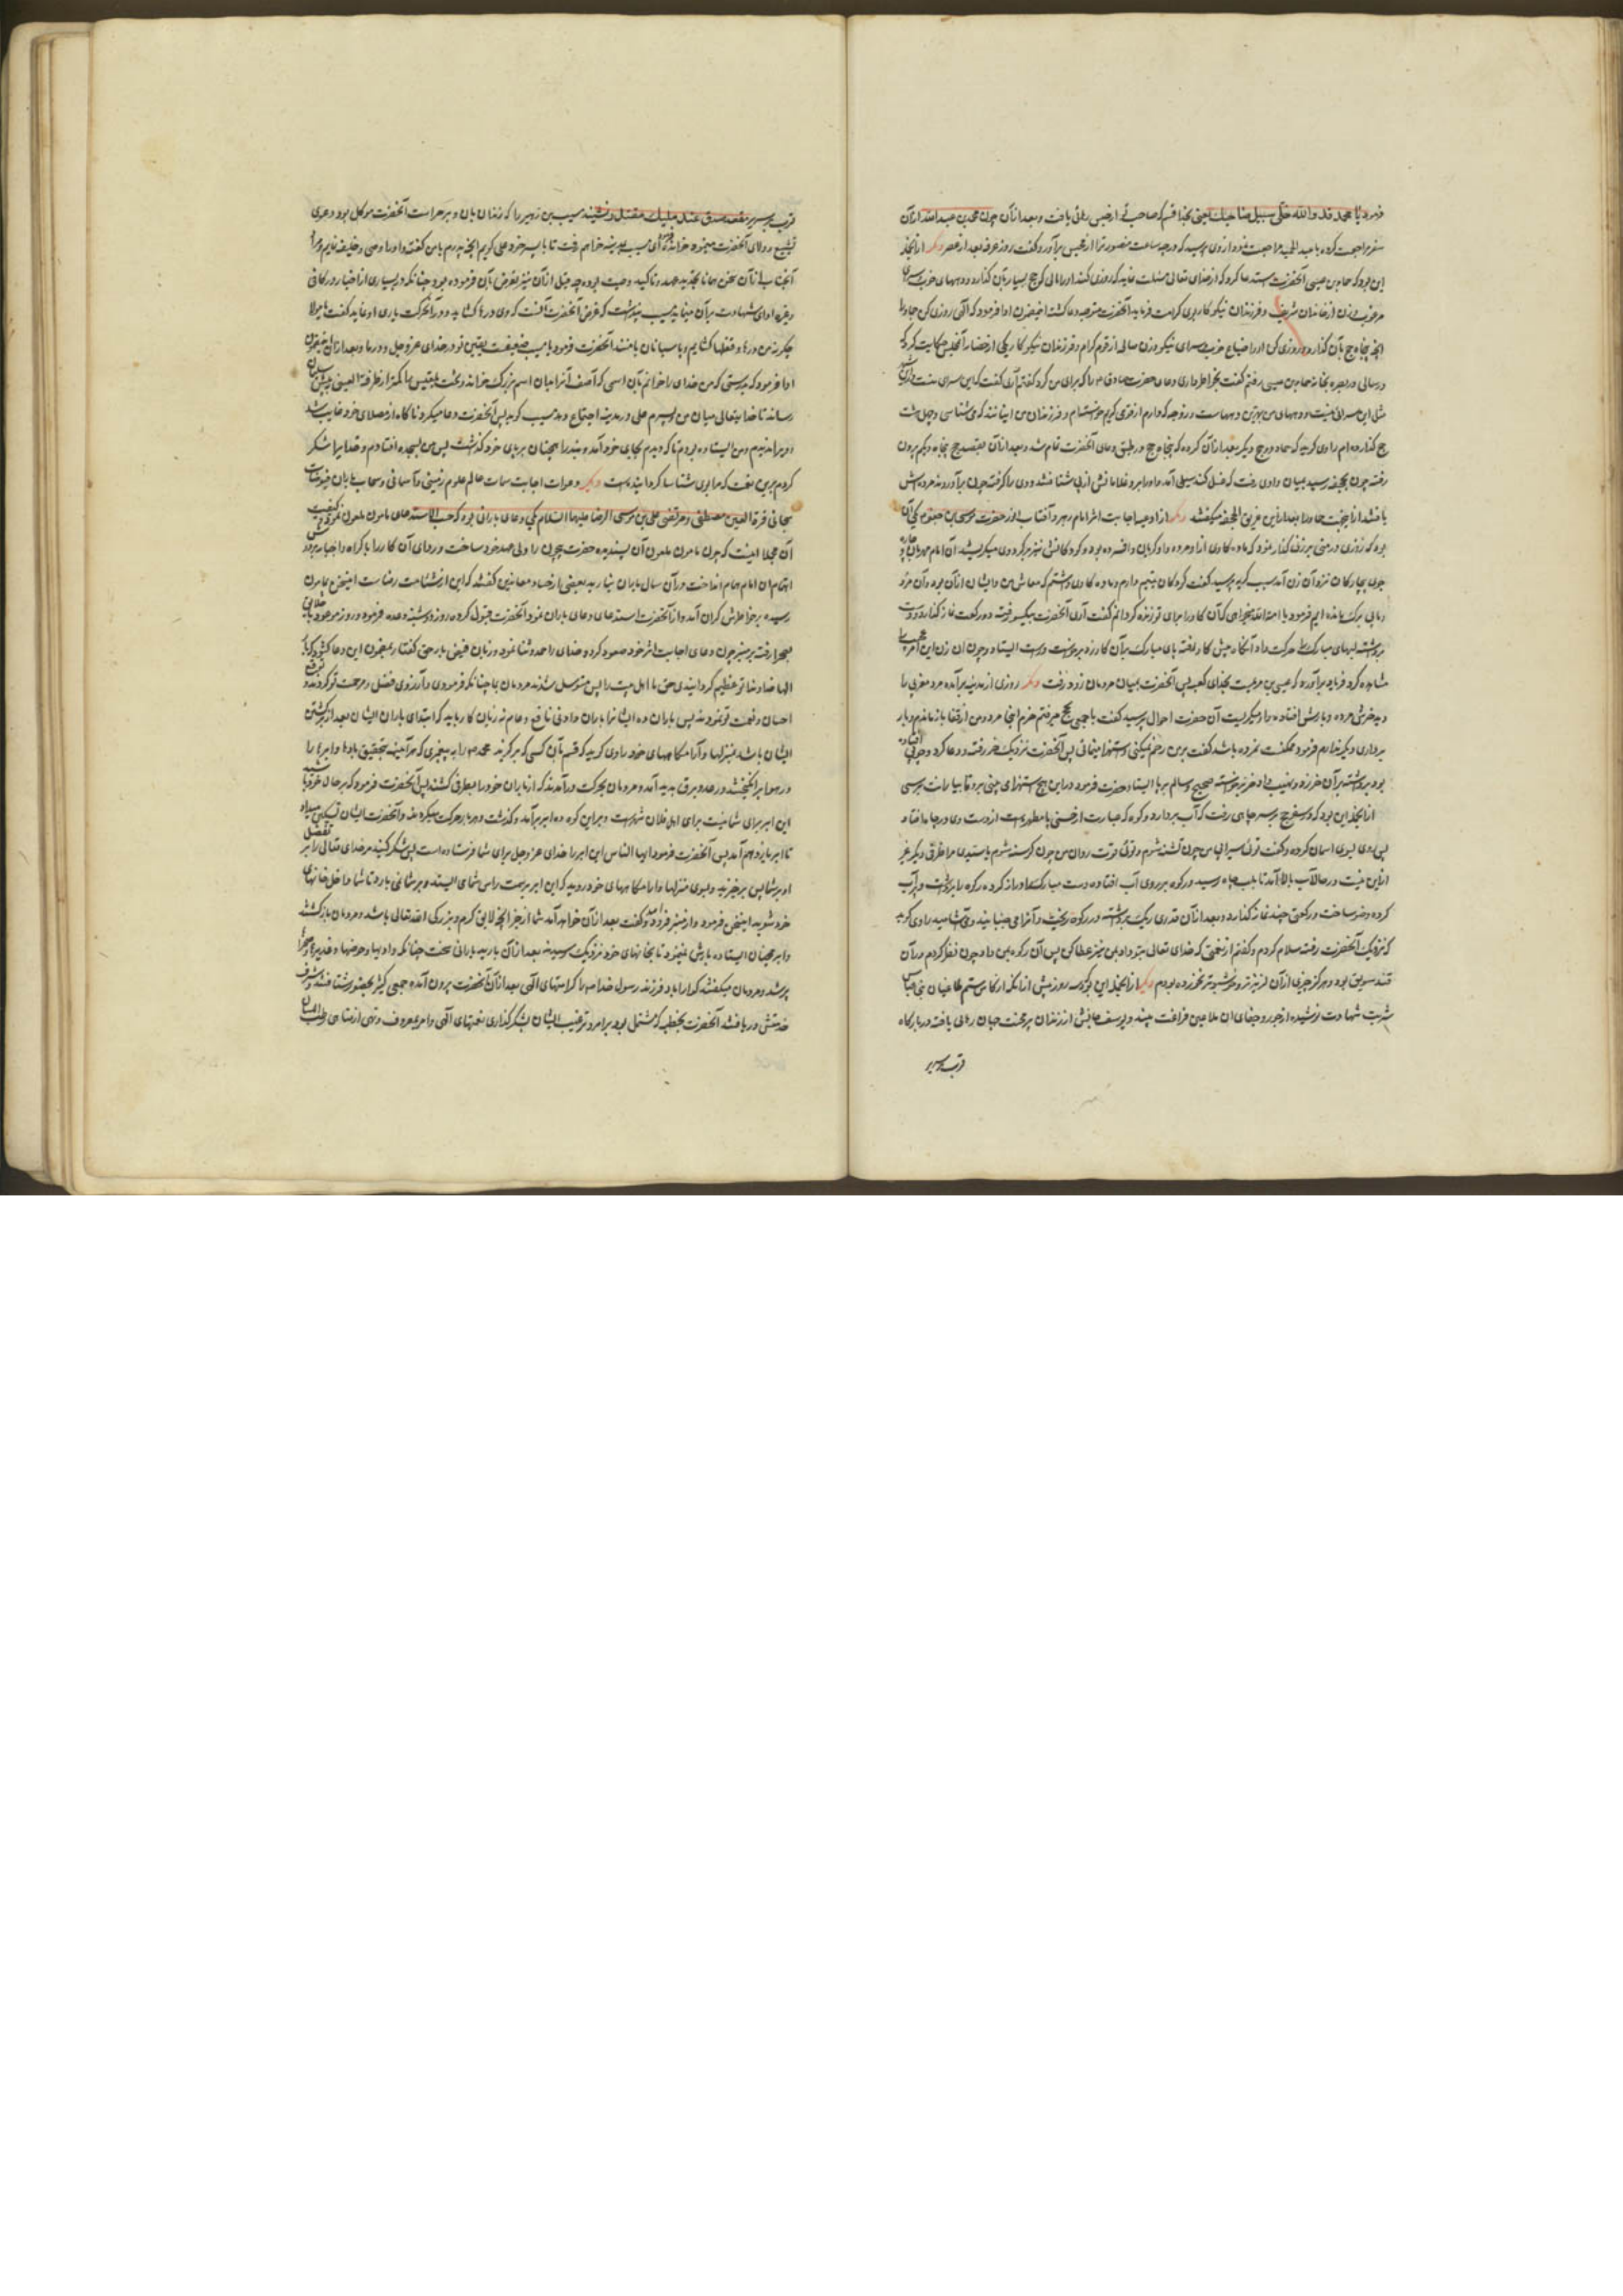 فرمود یا محمد قد والله خلّی سبیل صاحبک یعنی بخدا قسم که صاحب تو از حبس رهائی یافت و بعد از آن چون محمد بن عبدالله از آن
سفر مراجعت کرده با عبدالحمید مراجعت نمود از وی پرسید که در چه ساعت منصور ترا از حبس برآورد گفت روز عرفه بعد از عصر دیگر از آنجمله
این بود که حماد بن عیسی از آنحضرت استدعا کرد که از خدای تعالی مسئلت نماید که روزی کند او را مالی که حج بسیار بآن گذارد و دیههای خوب و سرای
مرغوب و زن از خاندان شریف و فرزندان نیکوکار پس کرامت فرماید آنحضرت متوجه دعا گشت اوا فرمود که الهی روزی کن حماد را
آنچه پنجاه حج بآن گذارد و روزی کن او را ضیاع خوب و سرای نیکو و زن صالح از قوم کرام و فرزندان نیکوکار یکی از حضار آنمجلس حکایت کرد که
در سالی در بصره بخانه حماد بن عیسی رفتم گفت بخاطر داری دعای حضرت صادق را که برای من کرد گفتم آری گفت که این سرای منست و در این شهر
مثل این سرائی نیست و دیههای من بهترین دیهها است و زوجه که دارم از قوم کریم و فرزندان من اینانند که می شناسی و چهل هشت
حج گذارده ام راوی گوید که حماد دو حج دیگر بعد از آن کرد که پنجاه حج بر طبق دعای آنحضرت تمام شد و بعد از آن بقصد حج پنجاه و یکم بیرون
رفته چون بجحفه رسید بمیان وادی رفت که غسل کند سیلی آمد و او را برد و غلامانش از پی شتافتند و وی را گرفته چون برآوردند مرده اش
یافتند از اینجهت حماد را بعد از این غریق الجحفه میگفتند دیگر از ادعیه اجابت اثر امام رهبر و آفتاب انور حضرت موسی بن جعفر یکی آن
بود که روزی در منی بر زنی گذار نمود که ماده گاوی از او مرده و او گریان و افسرده بود و کودکانش نیز بر گرد وی میگریستند آن امام مهربان و چاره
جوی بیچارگان نزد آن زن آمد سبب گریه پرسید گفت کودکان یتیم دارم و ماده گاوی داشتم که معاش من و ایشان از آن بود و آن مرد
و ما بی برگ مانده ایم فرمود یا امة الله میخواهی که آن گاو را برای تو زنده گردانم گفت آری آنحضرت بیکسو رفته دو رکعت نماز گذارد و دست
برداشته لبهای مبارک را حرکت داد آنگاه پیش گاو رفته پای مبارک بر آن گاو زد برخاست و راست ایستاد و چون آن زن این امر عجیب را
مشاهده کرد فریاد برآورد که عیسی بن مریمست بخدای کعبه پس آنحضرت بمیان مردمان زود رفت دیگر روزی از مدینه برآمده مرد مغربی را
دید خرش مرده و بارش افتاده و او میگریست آن حضرت احوال پرسید گفت با جمعی بحج میرفتم خرم اینجا مرد و من از رفقا بازماندم و بار
برداری دیگر ندارم فرمود ممکنست نمرده باشد گفت بر من رحم نمیکنی و استهزا مینمائی پس آنحضرت نزدیک خر رفت و دعا کرد و چوبی افتاده
بود برداشته بر آن خر زد و نهیب داد خر برخاست صحیح و سالم بر پا ایستاد حضرت فرمود در این هیچ استهزای می بینی برو تا بیارانت برسی
از آنجمله این بود که در سفر حج بر سر چاهی رفت که آب بردارد و رکوه که عبارت از مطهره است از دست وی در چاه افتاد
پس روی بسوی آسمان کرده و گفت توئی سیرابی من چون تشنه شوم و توئی قوت روان من چون گرسنه شوم یا سیدی مرا ظرف دیگر غیر
از این نیست در حال آب بالا آمد تا بلب چاه رسید و رکوه بر روی آب افتاده دست مبارک را دراز کرده رکوه را برداشت و پر آب
کرده وضو ساخت و رکعتی چند نماز گذارد و بعد از آن قدری ریگ برداشته در رکوه ریخت و آنرا می جنبانید و می آشامید راوی گوید
که نزدیک آنحضرت رفته سلام کردم و گفتم از نعمتی که خدای تعالی بتو داد بمن نیز عطا کن پس آن رکوه بمن داد چون نظر کردم در آن
قند سویق بود و هرگز چیزی از آن لذیذتر و خوشبوتر نخورده بودم دیگر از آنجمله این که سه روز پیش از آنکه از کاس ستم طاغیان بنی عباس
شربت شهادت نوشیده از جور و جفای آن ملاعین فراغت بیند و یوسف جانش از زندان پر محنت جهان رهائی یافته در بارگاه
قرب و سریر
قرب بر سریر مقعد صدق عند ملیک مقتدر نشیند مسیب بن زهیر را که زندان بان و بر حراست آنحضرت موکل بود و دعوی
تشیع و ولای آنحضرت مینمود خوانده ای مسیب بمدینه خواهم رفت تا با پسر خود علی گویم آنچه پدرم با من گفته و او را وصی و خلیفه نمایم
چگونه من درها و قفلها گشایم و پاسبانان با منند آنحضرت فرمود یا مسیب ضعیفست یقین تو در خدای عز و جل و در ما
اوا فرمود که بدرستی که من خدای را خوانم بآن اسمی که آصف آنرا میان اسم بزرگ خواند و تخت بلقیس را کمتر از طرفة العینی پیش سلیمان
رساند تا خدا یتعالی میان من و پسرم علی در مدینه اجتماع دهد مسیب گوید پس آنحضرت دعا میکرد ناگاه از مصلای خود غایب شد
و ویرا ندیدم و من ایستاده بودم تا که دیدم بجای خود آمد و بند را همچنان بر پای خود گذاشت پس من بسجده افتادم و خدا یرا شکر
کردم برین نعمت که مرا بوی شناسا گردانیده است دیگر دعوات اجابت سمات عالم علوم زمینی و آسمانی و سحاب باران فیوضات
سبحانی قرة العین مصطفی و مرتضی علی بن موسی الرضا علیهما السلام یکی دعای باران بود که حسب الاستدعای مامون ملعون نمود و کیفیت
آن مجملا اینست که چون مامون ملعون آن پسندیده حضرت بیچون را ولی عهد خود ساخت و ردای آن کار را با کراه و اجبار بر دوش
آن امام همام انداخت در آن سال باران نبارید بعضی از حساد و معاندین گفتند که این از شئامت رضا است اینسخن بمامون
رسیده بر خواطرش گران آمد و از آنحضرت استدعای دعای باران نمود آنحضرت قبول کرده روز دوشنبه وعده فرمود و روز موعود با خلایق
بصحرا رفت بر منبر چون دعای اجابت اثر خود صعود کرد و خدای را حمد و ثنا نمود و زبان فیض بار حق گفتار بمضمون این دعا گشود که بار
الها خداوندا تو عظیم گردانیدی حق ما اهل بیت را پس متوسل شدند مردمان بما چنانکه فرمودی و آرزوی فضل و رحمت تو کردند و توقع
احسان و نعمت تو نمودند پس باران ده ایشانرا باران وافی نافع و عام نه زیان کار باید که ابتدای باران ایشان بعد از برگشتن
ایشان باشد بمنزلها و آرامگاههای خود راوی گوید که قسم بآن کسی که برگزید محمد را به پیغمبری که هرآینه بتحقیق بادها و ابرها را
در هوا برانگیختند و رعد و برق پدید آمد و مردمان بحرکت درآمدند که از باران خود را بطرفی کشند پس آنحضرت فرمود که بر حال خود باشید
این ابر برای شما نیست برای اهل فلان شهر است و بر این گونه ده ابر برآمد و گذشت و هر بار حرکت میکردند و آنحضرت ایشان تسکین میداد
تا ابر یازدهم آمد پس آنحضرت فرمود ایها الناس این ابر را خدای عز و جل برای شما فرستاده است پس شکر کنید مر خدای تعالی را بر تفضل
او بر شما پس برخیزید و بسوی منزلها و آرامگاههای خود روید که این ابر بر سمت راس شمای ایستد و بر شما نمی بارد تا شما داخل خانهای
خود شوید اینسخن فرمود و از منبر فرود آمد و گفت بعد از آن خواهد آمد شما را از خیر آنچه لایق کرم و بزرگی الله تعالی باشد و مردمان بازگشتند
و ابر همچنان ایستاده بارش ننمود تا بخانهای خود نزدیک رسیدند بعد از آن بارید بارانی سخت چنانکه وادیها و حوضها و غدیرها
پر شد و مردمان میگفتند گوارا باد فرزند رسول خدا را کرامتهای الهی بعد از آن آنحضرت بیرون آمده جمعی کثیر بحضور شتافتند و شرف
خدمتش دریافتند آنحضرت بخطبه که مشتمل بود بر امر و ترغیب ایشان بشکرگذاری نعمتهای الهی و امر بمعروف و نهی از مناهی